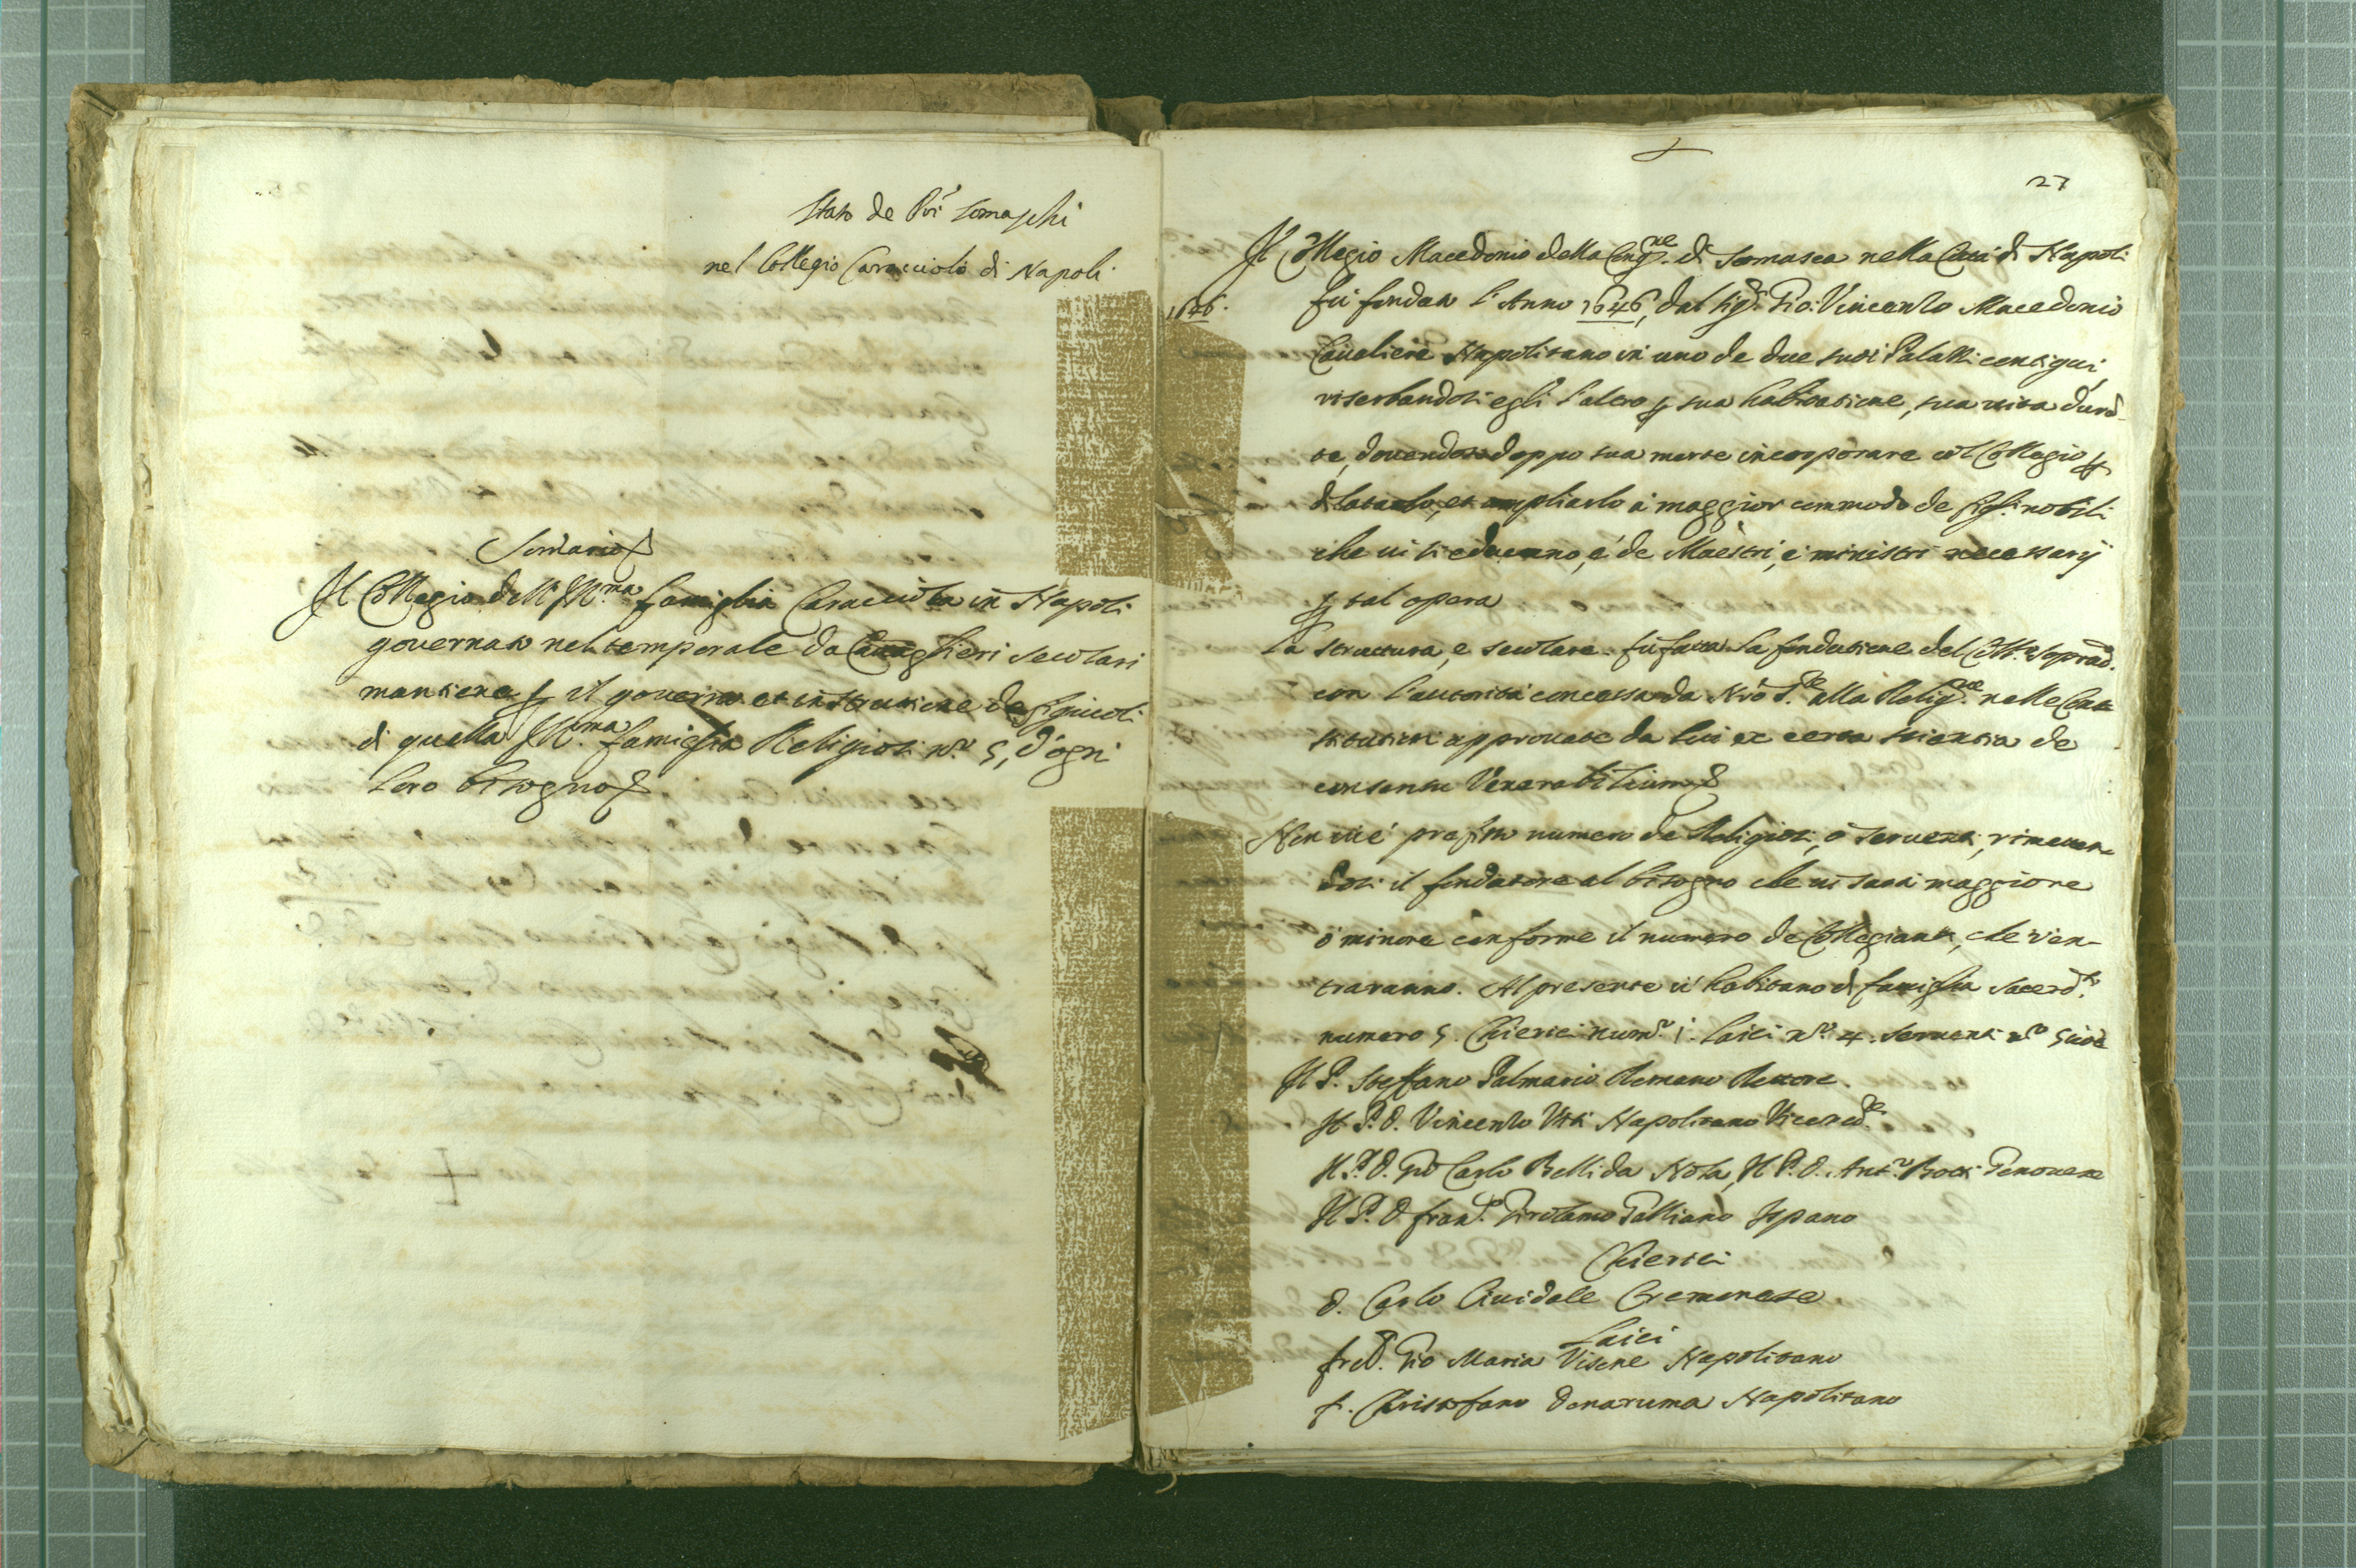 Stato de Pri Somaschi
nel Collegio Caracciolo di Napoli
Somario
Il Collegio dell' Ill.ma famiglia Caracciola in Napoli
governato nel temporale da Cauaglieri secolari
mantiene p il governo et instrutione de figlioli
di quella Ill.ma famiglia Religiosi n.o 5, d'ogni
loro bisogno
27
Il Collegio Macedonio della Cong.ne di Somasca nella Città di Napoli
1646.
fù fondato l'Anno 1646, dal Sig.r Gio: Vincenzo Macedonio
Caualiere Napolitano in uno de due suoi Palazzi contigui,
riserbandosi egli l'altro p sua habitatione, sua vita durā-
te, douendosi doppo sua morte incorporare col Collegio p
dilatarlo, et ampliarlo à maggior commodo de figli nobili
che ui si educano, e de Maestri, e ministri necessarij
p tal opera
La struttura, e secolare. fù fatta la fondatione del Coll.o soprad.o
con l'autorità concessa da N.ro S.re alla Relig.ne nelle Con-
stitutioni approuate da lui ex certa scientia de
consensu Venerabilium
Non ui è prefisso numero de Religiosi, ò seruenti, rimetten-
dosi il fondatore al bisogno che ui sarà maggiore
ò minore conforme il numero de Collegianti, che v'en-
traranno. Al presente u' habitano di famiglia sacerd.ti
numero 5. Chierici num.o 1. laici n.o 4. seruenti n.o 5 cioè
Il P. Steffano Palmario Romano Rettore.
Il P. D. Vincenzo Viti Napolitano Vicered.e
Il P. D. Gio Carlo Belli da Nola, Il P. D. Ant.o Genouese
Il P. D. Fran.co Girolamo Galliano Ispano
Chierici
D. Carlo Ciuidale Cremonese
Laici
Gio Maria Visone Napolitano
f. Christofano Denaruma Napolitano